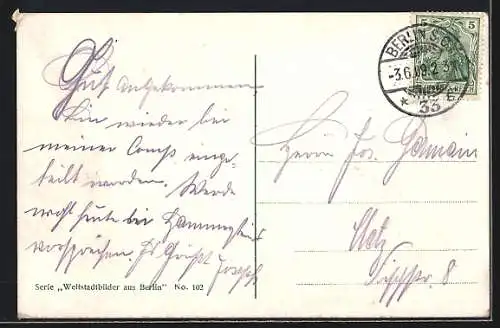 Gut angekommen.
Bin wieder bei
meiner Comp. einge-
teilt worden. Werde
wohl heute bei
vorsprechen. Es grüßt Joseph
Serie „Weltstadtbilder aus Berlin” No. 102
BERLIN S.
-3.6.09.2
33
5 5
Herrn Jos. Germain
Metz